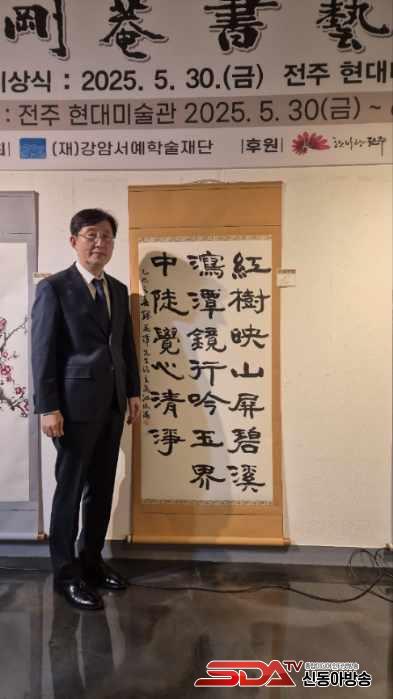 剛菴書藝
상식 : 2025. 5. 30.(금) 전주 현대미
: 전주 현대미술관 2025. 5. 30(금) ~
(재)강암서예학술재단 |후원| 한바탕 전주
紅樹映山屏碧溪
瀉潭鏡行吟玉界
中陡覺心清淨
SDATV
신동아방송